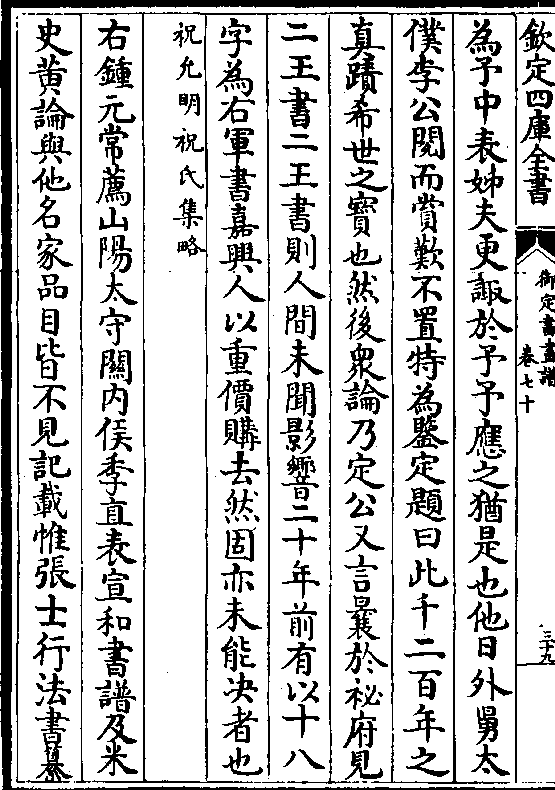 欽定四庫全書
御定書畫譜
卷七十
三十九
為予中表姊夫更諏於予予應之猶是也他日外舅太
僕李公閱而賞歎不置特為鑒定題曰此千二百年之
真蹟希世之寶也然後衆論乃定公又言曩於祕府見
二王書二王書則人間未聞影響二十年前有以十八
字為右軍書嘉興人以重價購去然固亦未能决者也
祝允明祝氏集略
右鍾元常薦山陽太守關内侯季直表宣和書譜及米
史黃論與他名家品目皆不見記載惟張士行法書纂